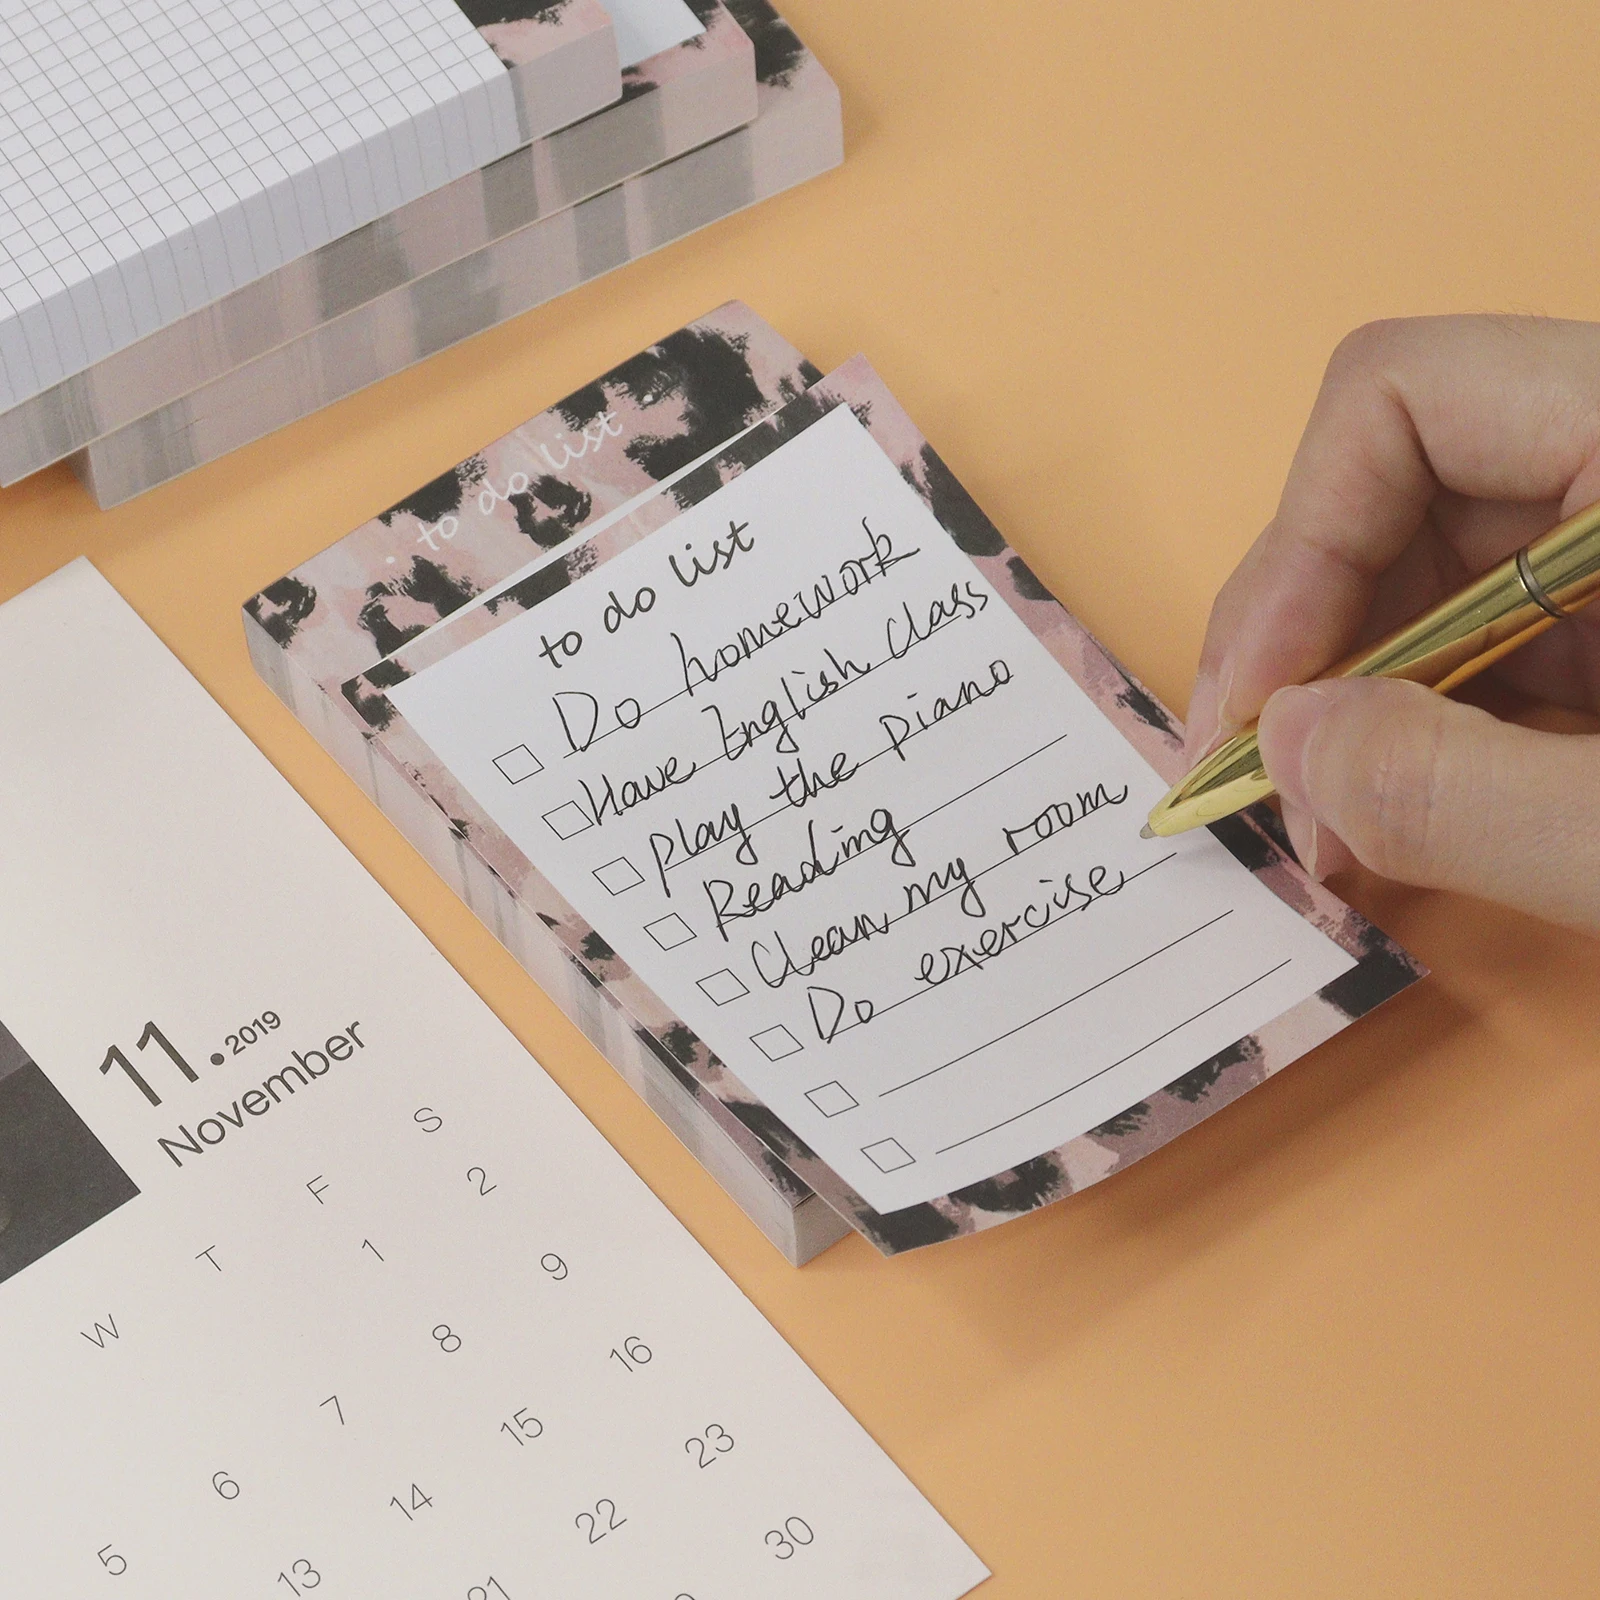 to do list
to do list
Do homework
Have English Class
play the piano
Reading
Clean my room
Do exercise
11.2019
November
W T F S
1 2
7 8 9
5 6
14 15 16
13
21 22 23
30